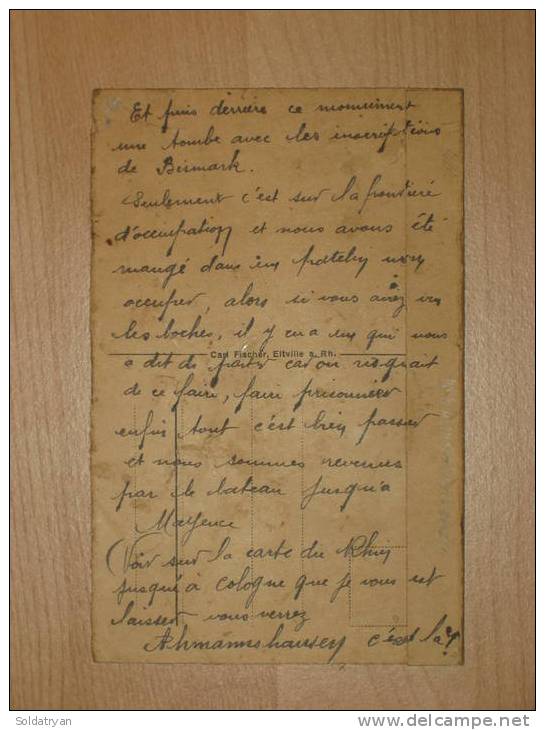 Et puis derriere ce monument
une tombe avec les inscriptions
de Bismark.
Seulement c'est sur la frontière
d'occupation et nous avons été
mangé dans un patelin non
occuper, alors si vous aviez vu
les boches, il y en a un qui nous
Carl Fischer, Eltville a. Rh.
a dit de partir car on risquait
de ce faire, faire prisonnier
enfin tout c'est bien passer
et nous sommes revenus
par le bateau jusqu'a
Mayence
(Voir sur la carte du Rhin
jusqu'à cologne que je vous est
laisser vous verrez
Ahmannshausen c'est la
Soldatryan
www.delcampe.net